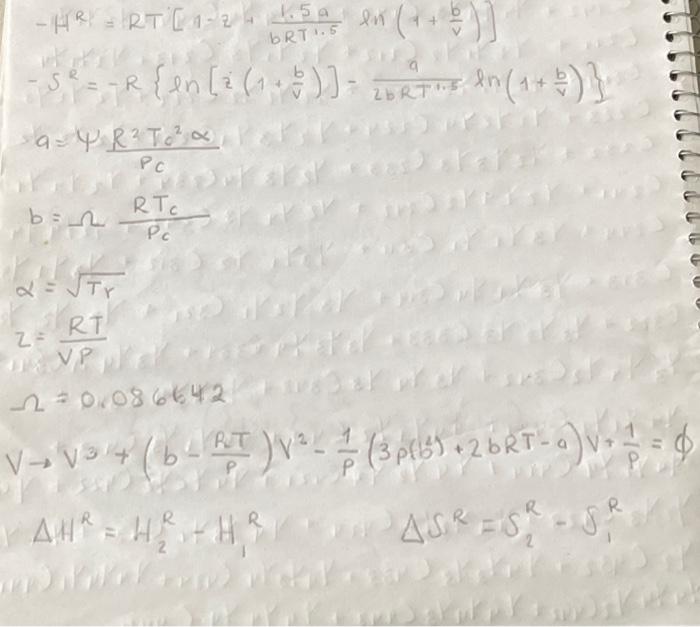 -Hᴿ = RT [ 1-z + 1.5a/bRT^1.5 ln(1 + b/v) ]
-Sᴿ = -R { ln [ z (1 + b/v) ] - a/2bRT^1.5 ln(1 + b/v) }
a = Ψ R² Tc² α / Pc
b = Ω RTc / Pc
α = √Tr
z = RT / VP
Ω = 0.086642
V → V³ + (b - RT/P) V² - 1/P (3p(b²) + 2bRT - a) V + 1/P = ϕ
ΔHᴿ = H₂ᴿ - H₁ᴿ ΔSᴿ = S₂ᴿ - S₁ᴿ